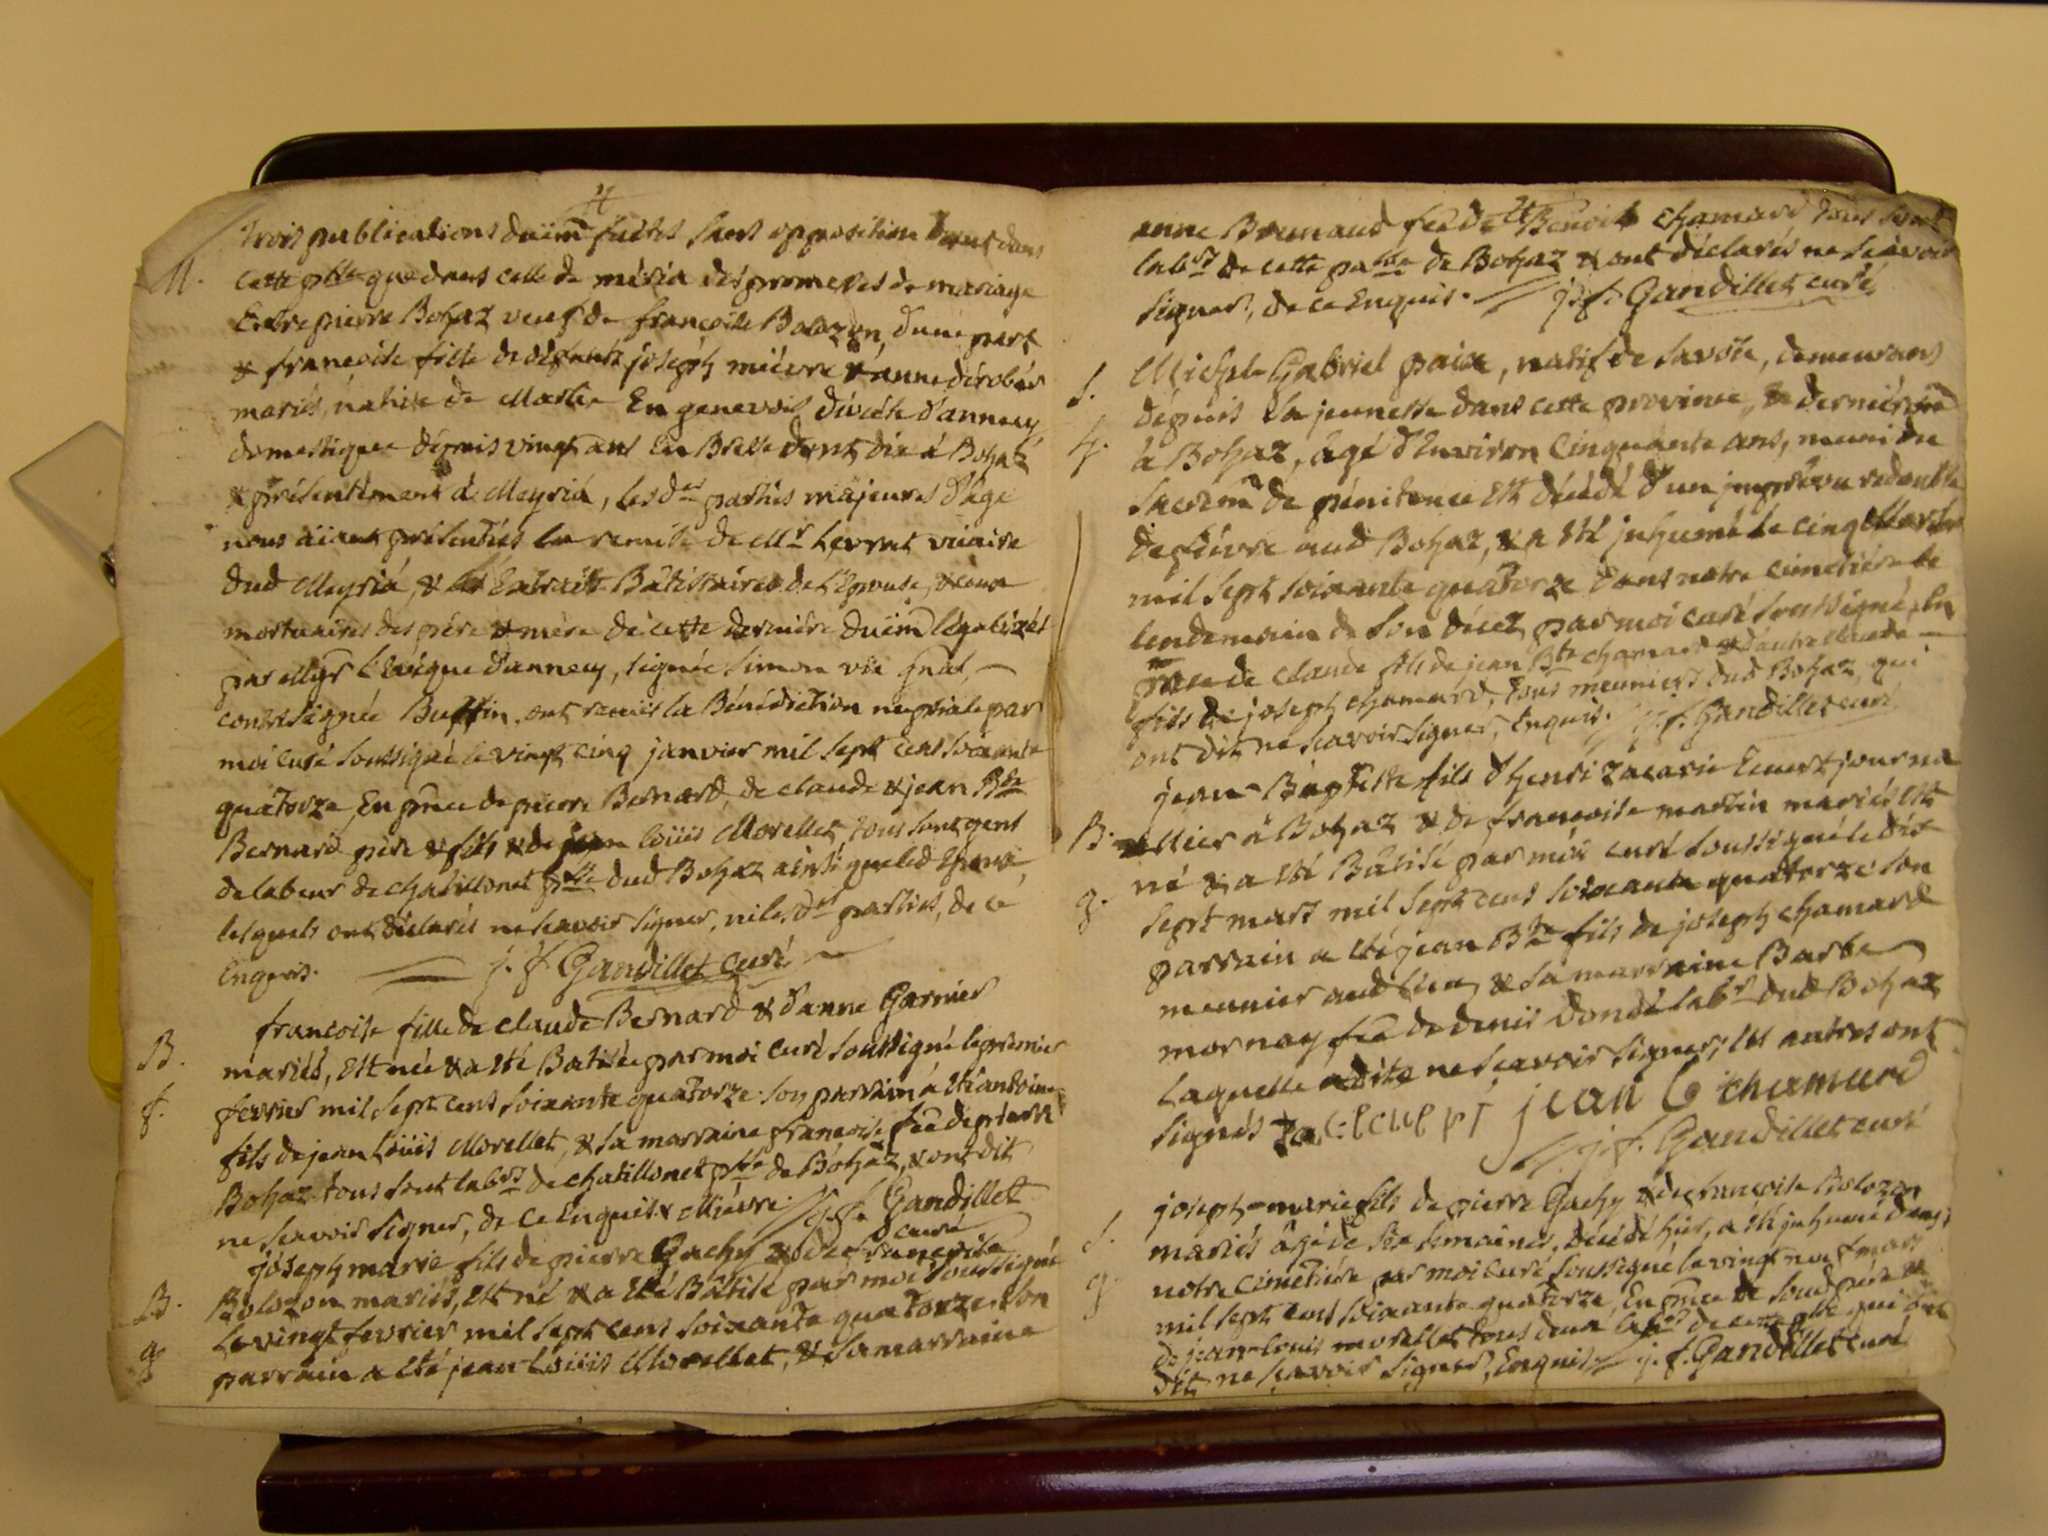 trois publications düem̃ faites sans opposition tant dans
M. cette p̃sse que dans celle de méria des promesses de mariage
Entre pierre Bohaz veuf de françoise Bolozon d'une part
& françoise fille de défunts joseph miévre & anne
mariés, native de En genevois diocèse d'annecy
domestique dépuis vingt ans En Bresse dont dix à Bohaz
& présentement à Meyriá, lesd.es parties majeures d'age
nous aiant présentées la remise de Mr Levrat vicaire
dud Meyriá, & les Extraits Bâtistaires de l'Epouse, & ceux
mortuaires des père & mère de cette dernière düem̃ légalizés
par Mgr L'évêque d'annecy, signée Simon vic gñal,
contresignée Buffin, ont reçuës la Bénédiction nuptiale par
moi curé soussigné le vingt cinq janvier mil sept cens soixante
quatorze, En p̃nce de pierre Bernard, de claude & jean Bte
Bernard père & fils & de jean loüis Morellet, tous sont gens
de labeur de chatillonet p̃sse dud Bohaz ainsi que led Epoux,
lesquels ont déclarés ne scavoir signer, ni lesd.es parties, de ce
Enquis. j. f. Gandillet curé
francoise fille de claude Bernard & d'anne Garnier
B. mariés, est née & a été Batisée par moi curé soussigné le premier
f. fevrier mil sept cens soixante quatorze. son parrain a été antoine
fils de jean Loüis Morellet, & sa marraine françoise fẽe de pierre
Bohaz tous sont labrs de chatillonet p̃sse de Bohaz, & ont dit
ne scavoir signer, de ce Enquis & Miévre. j. f. Gandillet
curé
joseph marie fils de pierre Gachy & de françoise
B. Bolozon mariés, est né & a été Bâtisé par moi soussigné
g. le vingt fevrier mil sept cens soixante quatorze. son
parrain a été jean Loüis Morellet, & sa marraine
anne Brunaud fẽe de Benoit chamard tous sont
labrs de cette paroisse de Bohaz & ont déclarés ne scavoir
signer, de ce Enquis. j. f. Gandillet curé
S. Michel Gabriel paix, natif de savoie, demeurans
dépuis sa jeunesse dans cette province, & dernièrem̃
4. à Bohaz, âgé d'Environ cinquante ans, muni du
sacrem̃ de pénitence est décédé d'un imprévu redouble
de fiévre aud Bohaz, & a été inhumé le cinq Mars
mil sept soixante quatorze dans notre cimetière le
lendemain de son décez par moi curé soussigné, En
p̃nce de claude fils de jean Bte chamard & d'autre claude
fils de joseph chamard, tous meuniers dud Bohaz, qui
ont dit ne scavoir signer, Enquis. j. f. Gandillet curé
jean Baptiste fils d'henri zacarie Ecuert journa
B. allier à Bohaz & de francoise martin mariés est
né & a été Bâtisé par moi curé soussigné le dit
g. sept mars mil sept cens soixante quatorze son
parrain a été jean Bte fils de joseph chamard
meunier aud lieu, & sa marraine Barbe
mornay fẽe de denis Dondé labr dud Bohaz
laquelle a dite ne scavoir signer; les autres ont
signés jean b chamard
j. f. Gandillet curé
joseph-marie fils de pierre Gachy & de françoise Bolozon
S. mariés âgé de six semaines, décédé hier, a été inhumé dans
g. notre cimetière par moi curé soussigné le vingt neuf mars
mil sept cens soixante quatorze, En p̃nce de soud père &
de jean-louis morellet tous deux labrs de cette p̃sse qui ont
dit ne scavoir signer, Enquis. j. f. Gandillet curé